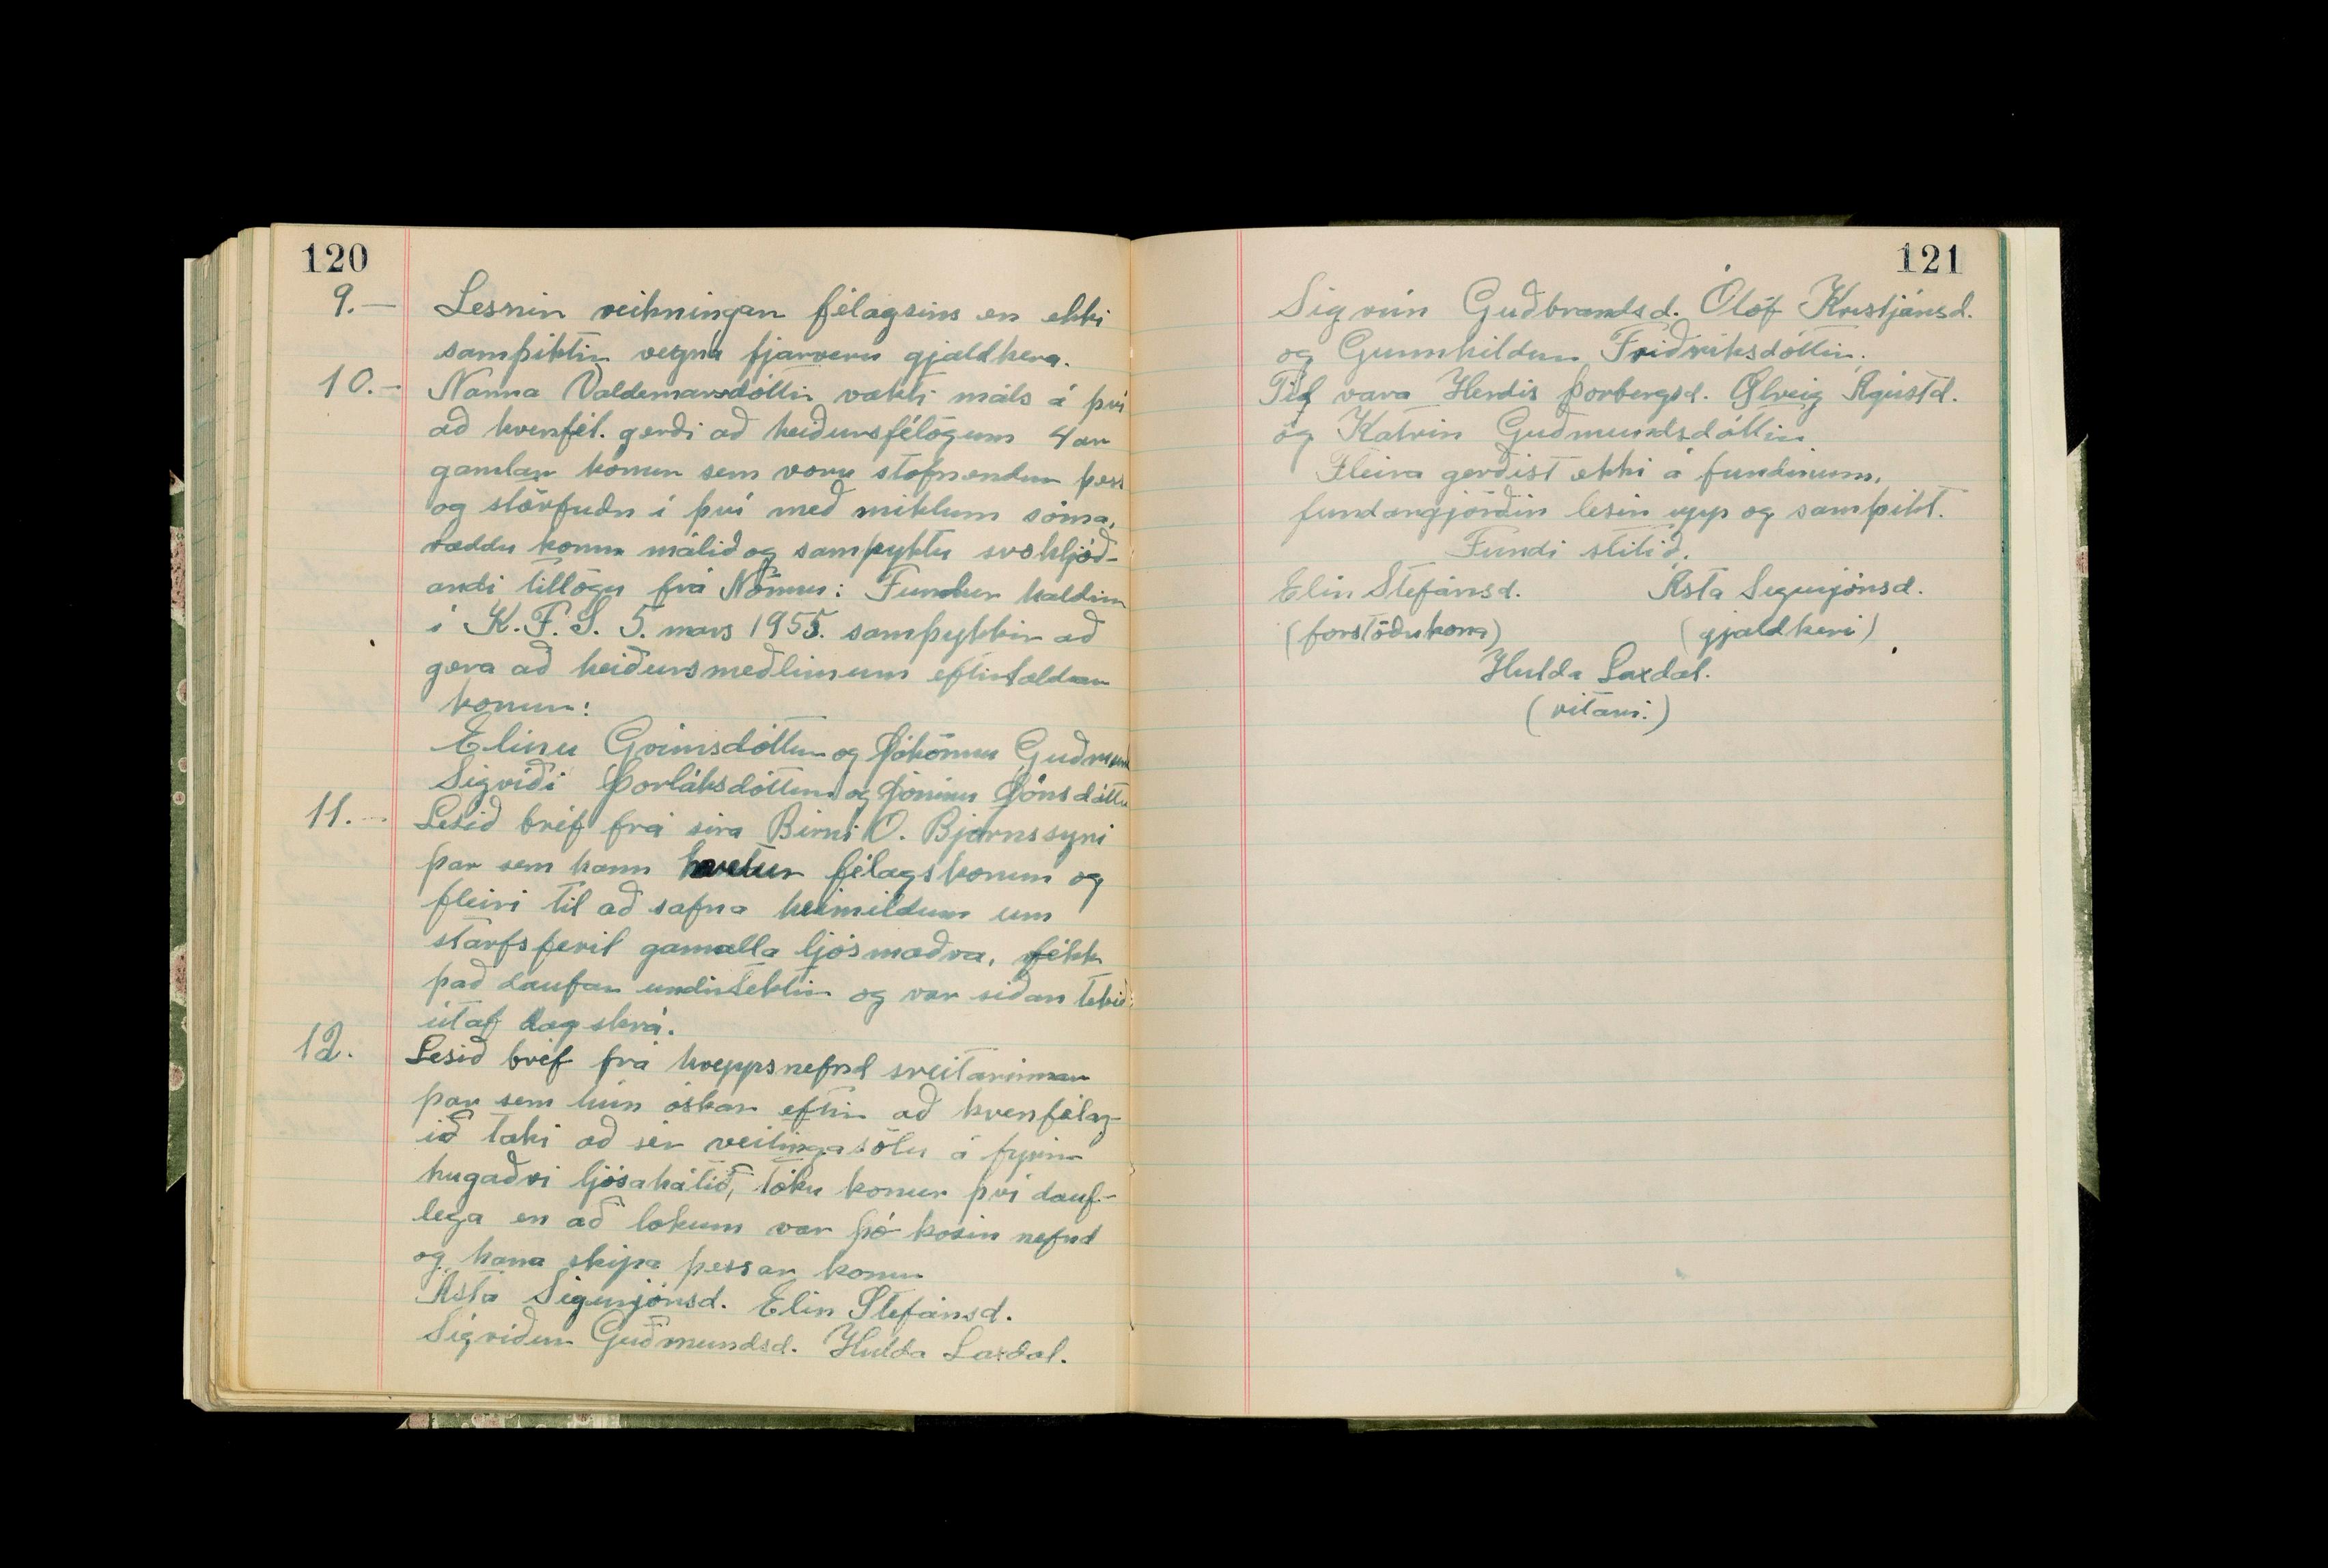 120
9.— Lesnir reikningar félagsins en ekki
samþiktir vegna fjarveru gjaldkera.
10.— Nanna Valdemarsdóttir vakti máls á því
að kvenfél. gerði að heiðursfélögum 4ar
gamlar konur sem voru stofnendur þess
og störfuðu í því með miklum sóma,
ræddu konur málið og samþyktu svohljóð-
andi tillögu frá Nönnu: Fundur haldin
í K.F.S. 5. mars 1955. samþykkir að
gera að heiðursmeðlimum eftirtaldar
konur:
Elínu Grímsdóttur og Jóhönnu Guðmund
Sigríði Þorláksdóttur og Jónínu Jónsdóttu
11.— Lesið bréf frá síra Birni O. Björnssyni
þar sem hann hvetur félagskonur og
fleiri til að safna heimildum um
starfsferil gamalla ljósmæðra, fékk
það daufar undirtektir og var síðan tekið
útaf dagskrá.
12. Lesið bréf frá hreppsnefnd sveitarinnar
þar sem hún óskar eftir að kvenfélag-
ið taki að sér veitingasölu á fyrir
hugaðri ljósahátíð, tóku konur því dauf-
lega en að lokum var þó kosin nefnd
og hana skipa þessar konur
Ásta Sigurjónsd. Elín Stefánsd.
Sigríður Guðmundsd. Hulda Laxdal.
121
Sigrún Guðbrandsd. Ólöf Kristjánsd.
og Gunnhildur Friðriksdóttir.
Til vara Herdís Þorbergsd. Ölveig Ágústd.
og Katrín Guðmundsdóttir
Fleira gerðist ekki á fundinum,
fundargjörðin lesin upp og samþikt.
Fundi slitið.
Elín Stefánsd. Ásta Sigurjónsd.
(forstöðukona) (gjaldkeri)
Hulda Laxdal.
(ritari.)